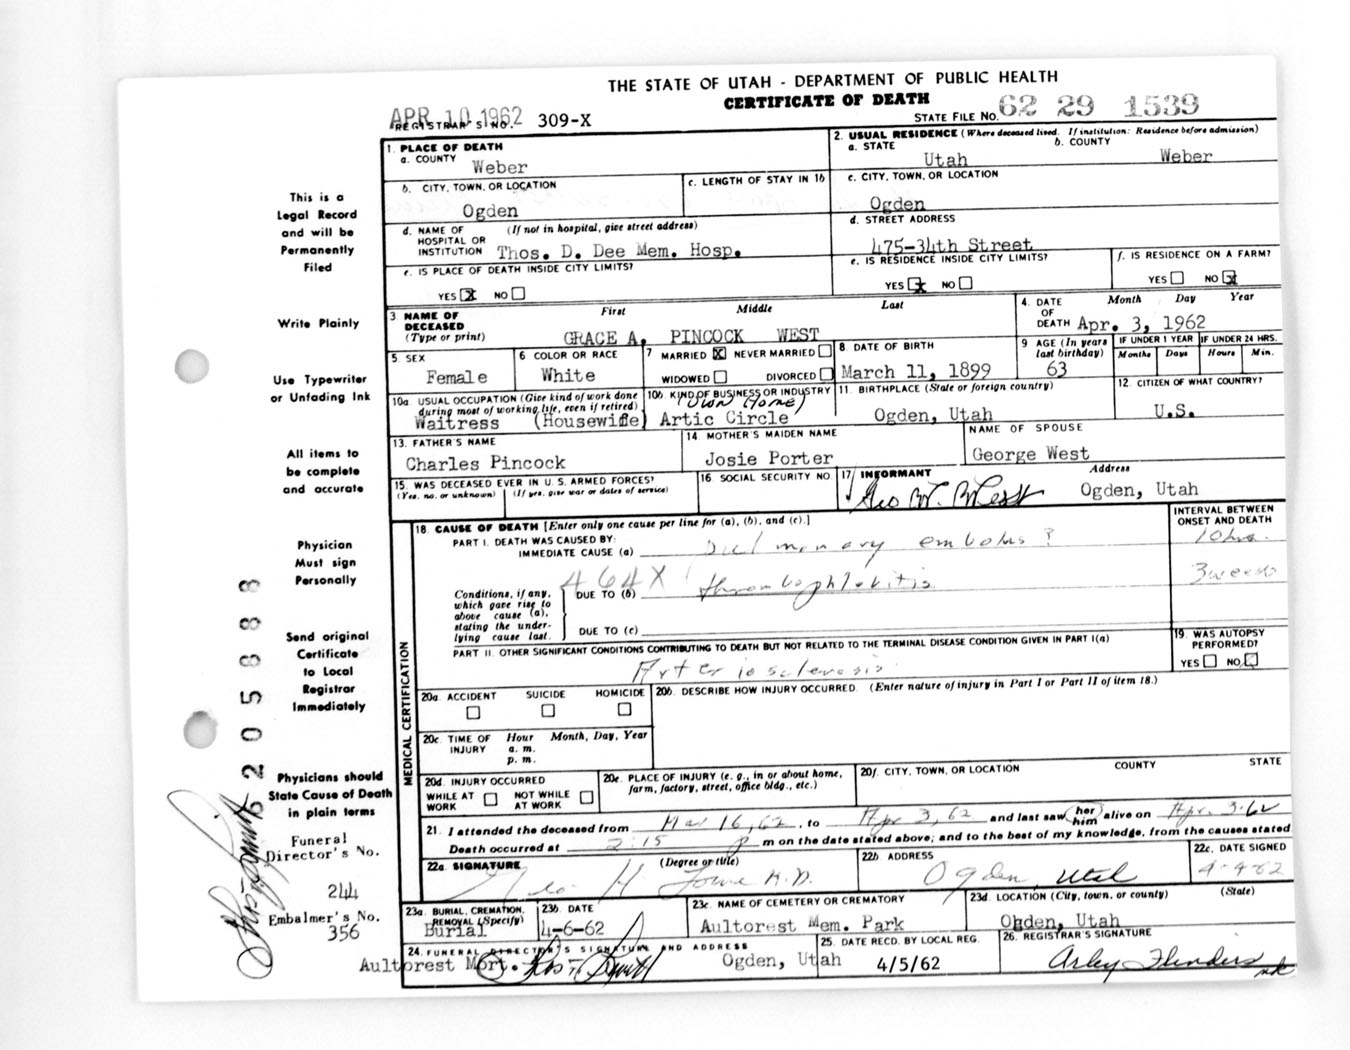 THE STATE OF UTAH - DEPARTMENT OF PUBLIC HEALTH
CERTIFICATE OF DEATH
APR 10 1962
REGISTRAR'S NO. 309-X
STATE FILE NO. 62 29 1539
1. PLACE OF DEATH
a. COUNTY
Weber
2. USUAL RESIDENCE (Where deceased lived. If institution: Residence before admission)
a. STATE b. COUNTY
Utah Weber
b. CITY, TOWN, OR LOCATION
Ogden
c. LENGTH OF STAY IN 1b
c. CITY, TOWN, OR LOCATION
Ogden
d. NAME OF HOSPITAL OR INSTITUTION (If not in hospital, give street address)
Thos. D. Dee Mem. Hosp.
d. STREET ADDRESS
475-34th Street
e. IS PLACE OF DEATH INSIDE CITY LIMITS?
YES X NO
e. IS RESIDENCE INSIDE CITY LIMITS?
YES X NO
f. IS RESIDENCE ON A FARM?
YES NO X
3 NAME OF DECEASED (Type or print)
First Middle Last
GRACE A. PINCOCK WEST
4. DATE OF DEATH Month Day Year
Apr. 3, 1962
5. SEX
Female
6 COLOR OR RACE
White
7 MARRIED X NEVER MARRIED
WIDOWED DIVORCED
8. DATE OF BIRTH
March 11, 1899
9 AGE (In years last birthday)
63
IF UNDER 1 YEAR
Months Days
IF UNDER 24 HRS.
Hours Min.
10a USUAL OCCUPATION (Give kind of work done during most of working life, even if retired)
Waitress (Housewife)
10b KIND OF BUSINESS OR INDUSTRY
(Own Home)
Artic Circle
11. BIRTHPLACE (State or foreign country)
Ogden, Utah
12 CITIZEN OF WHAT COUNTRY?
U.S.
13. FATHER'S NAME
Charles Pincock
14 MOTHER'S MAIDEN NAME
Josie Porter
NAME OF SPOUSE
George West
15. WAS DECEASED EVER IN U. S. ARMED FORCES?
(Yes, no, or unknown) (If yes, give war or dates of service)
16 SOCIAL SECURITY NO.
17 INFORMANT Address
Geo W. West Ogden, Utah
18. CAUSE OF DEATH [Enter only one cause per line for (a), (b), and (c).]
INTERVAL BETWEEN ONSET AND DEATH
PART I. DEATH WAS CAUSED BY:
IMMEDIATE CAUSE (a) pulmonary embolus ? 10 hrs.
464X
Conditions, if any, which gave rise to above cause (a), stating the underlying cause last.
DUE TO (b) thrombophlebitis 3 weeks
DUE TO (c)
PART II. OTHER SIGNIFICANT CONDITIONS CONTRIBUTING TO DEATH BUT NOT RELATED TO THE TERMINAL DISEASE CONDITION GIVEN IN PART I(a)
Arteriosclerosis
19. WAS AUTOPSY PERFORMED?
YES NO
MEDICAL CERTIFICATION
20a. ACCIDENT SUICIDE HOMICIDE
20b. DESCRIBE HOW INJURY OCCURRED. (Enter nature of injury in Part I or Part II of item 18.)
20c. TIME OF INJURY Hour Month, Day, Year
a. m.
p. m.
20d. INJURY OCCURRED
WHILE AT WORK NOT WHILE AT WORK
20e. PLACE OF INJURY (e. g., in or about home, farm, factory, street, office bldg., etc.)
20f. CITY, TOWN, OR LOCATION COUNTY STATE
21. I attended the deceased from Mar 16, 62, to Apr 3, 62 and last saw her him alive on Apr. 3-62
Death occurred at 2:15 p m on the date stated above; and to the best of my knowledge, from the causes stated
22a. SIGNATURE (Degree or title)
H. Lowe M.D.
22b ADDRESS
Ogden, Utah
22c. DATE SIGNED
4-4-62
23a. BURIAL, CREMATION, REMOVAL (Specify)
Burial
23b. DATE
4-6-62
23c. NAME OF CEMETERY OR CREMATORY
Aultorest Mem. Park
23d. LOCATION (City, town, or county) (State)
Ogden, Utah
24. FUNERAL DIRECTOR'S SIGNATURE AND ADDRESS
Aultorest Mort. Ogden, Utah
25. DATE RECD. BY LOCAL REG.
4/5/62
26. REGISTRAR'S SIGNATURE
Arley Flinders
This is a
Legal Record
and will be
Permanently
Filed
Write Plainly
Use Typewriter
or Unfading Ink
All items to
be complete
and accurate
Physician
Must sign
Personally
Send original
Certificate
to Local
Registrar
Immediately
Physicians should
State Cause of Death
in plain terms
Funeral
Director's No.
244
Embalmer's No.
356